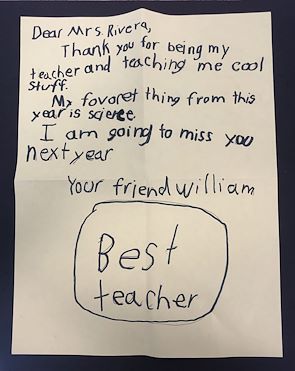 Dear Mrs. Rivera,
Thank you for being my
teacher and teaching me cool
stuff.
My favoret thing from this
year is science.
I am going to miss you
next year
Your friend william
Best
teacher